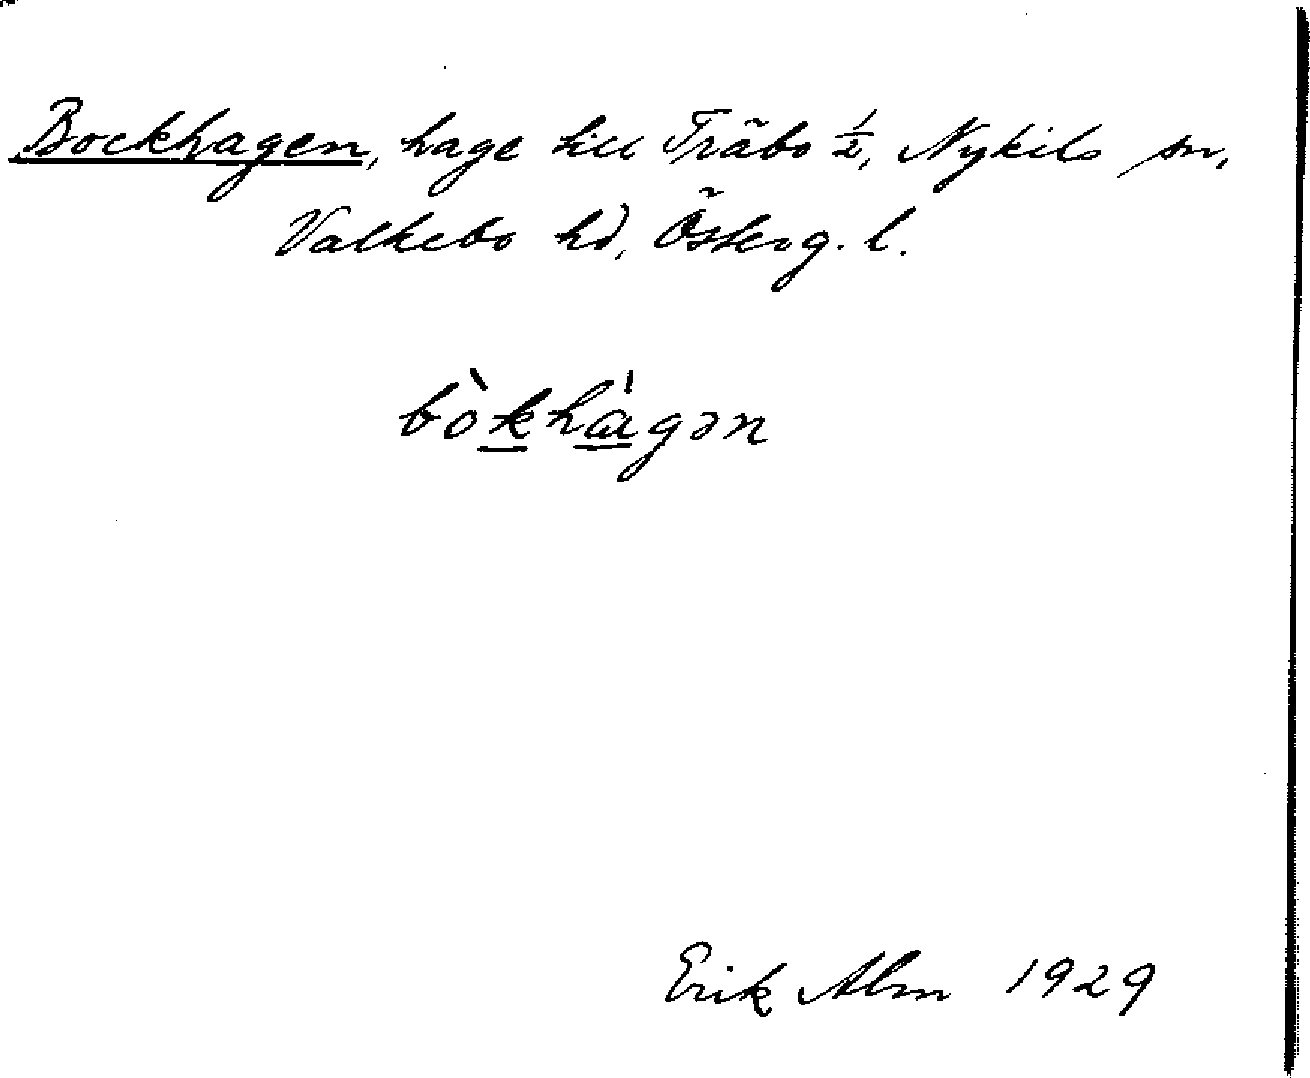 Bockhagen, hage till Träbo ½, Nykils sn,
Valkebo hd, Österg. l.
bòkhágən
Erik Alm 1929